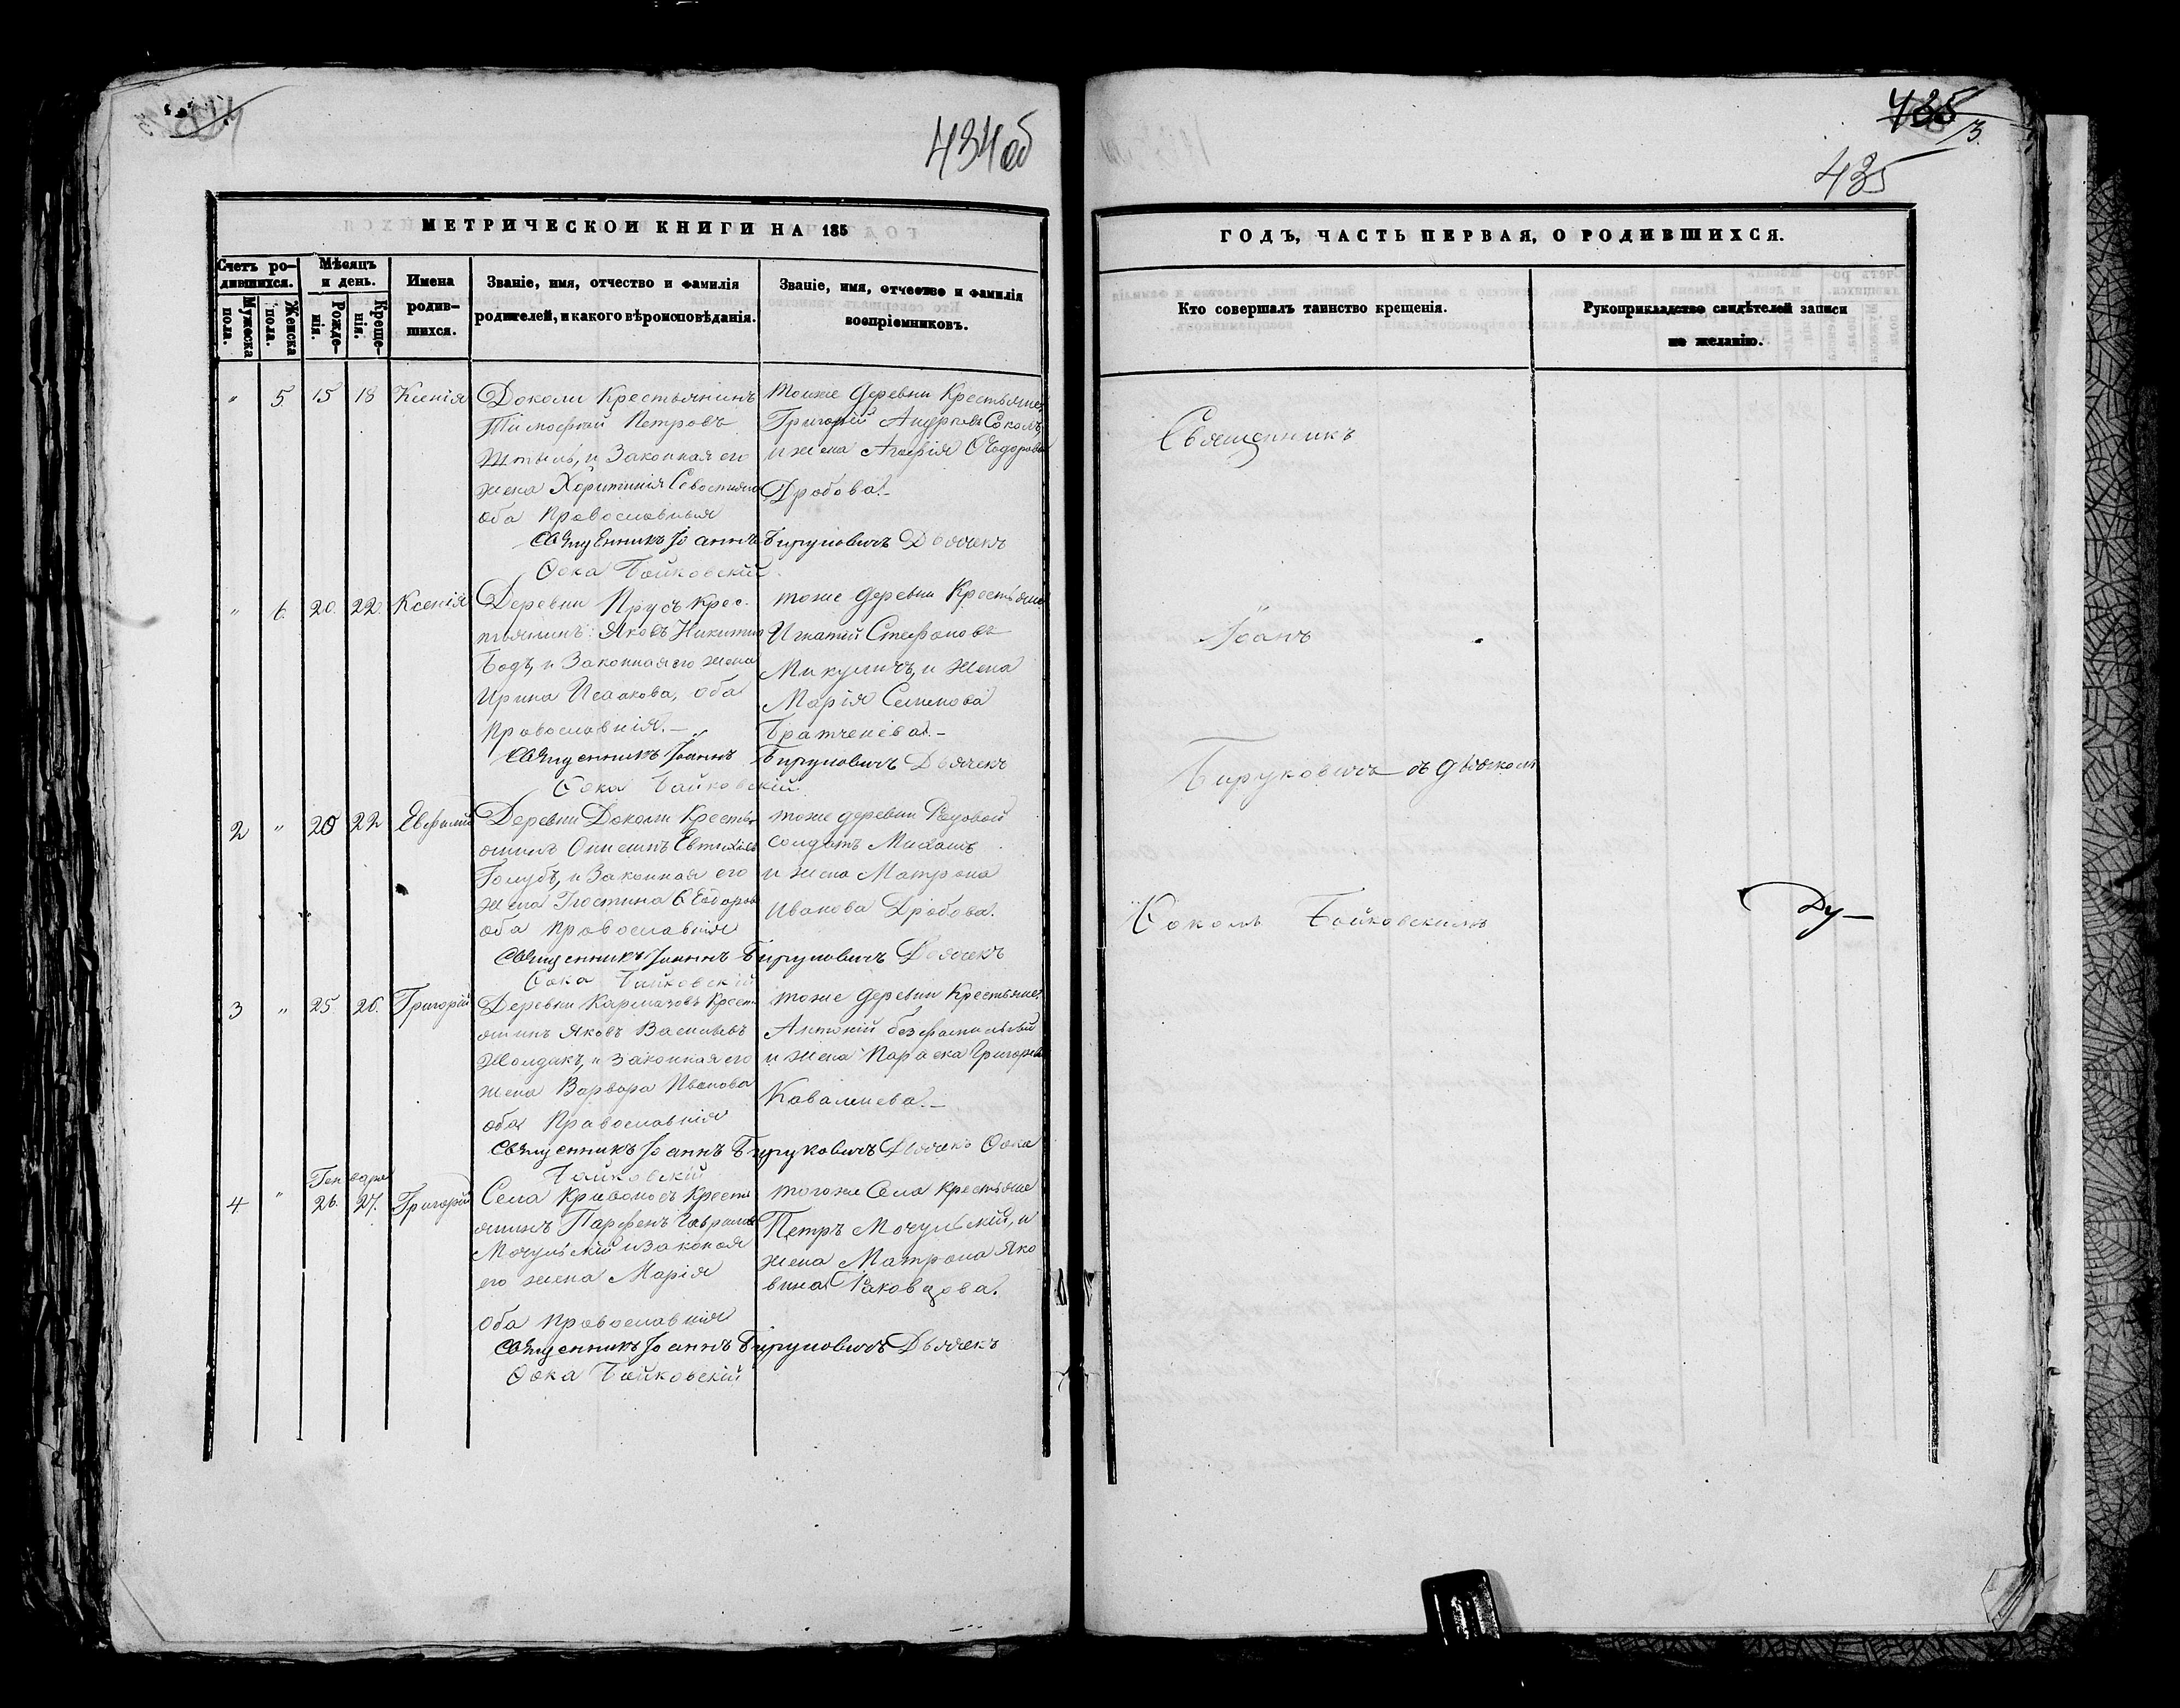 434 об
МЕТРИЧЕСКОЙ КНИГИ НА 185
Счетъ ро-
дившихся.
Мужеска
пола.
Женска
пола.
Мѣсяцъ
и день.
Рожде-
нія.
Креще-
нія.
Имена
родив-
шихся.
Званіе, имя, отчество и фамилія
родителей, и какого вѣроисповѣданія.
Званіе, имя, отчество и фамилія
воспріемниковъ.
" 5. 15 18 Ксенія
Доколи Крестьянинъ
Тимофтей Петровъ
и Законная его
жена Харитинія
оба Православныя
тойже деревни Крестьяне
Григорій Соколъ,
и жена Агафія Ѳеодорова
Дробова.-
Священникъ Іоаннъ Бируковичъ Дьячекъ
Ѳока Бойковскій
" 6. 20. 22. Ксенія
Деревни Прусъ Крес.
тьянинъ Яковъ Никитинъ
Бодъ, и Законная его жена
Ирина Исаакова, оба
Православнія.-
тоже деревни Крестьяне
Игнатій Стефановъ
Микуличъ, и жена
Марія Семенова
Братченева.-
Священникъ Іоаннъ Бируковичъ Дьячекъ
Ѳока Бойковскій
2 " 20 22 Евфимій
Деревни Доколи Крестья
анинъ Евтихіевъ
Голубъ, и Законная его
жена Іюстина Ѳеодоров
оба Православнія
тоже деревни Рядовой
солдатъ Михаилъ
и жена Матрона
Иванова Дробова.
Священникъ Іоаннъ Бируковичъ Дьячекъ
Ѳока Бойковскій
3 " 25. 26. Григорій
Деревни Кармазовъ Крест
анинъ Яковъ Васильевъ
Жолдакъ, и Законная его
жена Варвара Иванова
оба Православнія
тоже деревни Крестьяне
Антоній безфамильный
и жена Параска Григорьев
Ковалнева.-
Священникъ Іоаннъ Бируковичъ Дьячекъ Ѳока
Бойковскій
Генваря
4 " 26. 27. Григорій
Села Кривоносъ Кресть
янинъ Парфенъ Гавриловъ
Мочульскій и Законая
его жена Марія
оба Православнія
тогоже Села Крестьяне
Петръ Мочульскій, и
жена Матрона Яко
вина Раковцова.
Священникъ Іоаннъ Бируковичъ Дьячекъ
Ѳока Бойковскій
435
13.
435
ГОДЪ, ЧАСТЬ ПЕРВАЯ, О РОДИВШИХСЯ.
Кто совершалъ таинство крещенія.
Рукоприкладство свидѣтелей записи
по желанію.
Священникъ
Іоанъ
Бируковичъ съ дьячкомъ
Ѳокомъ Бойковскимъ
Ду-